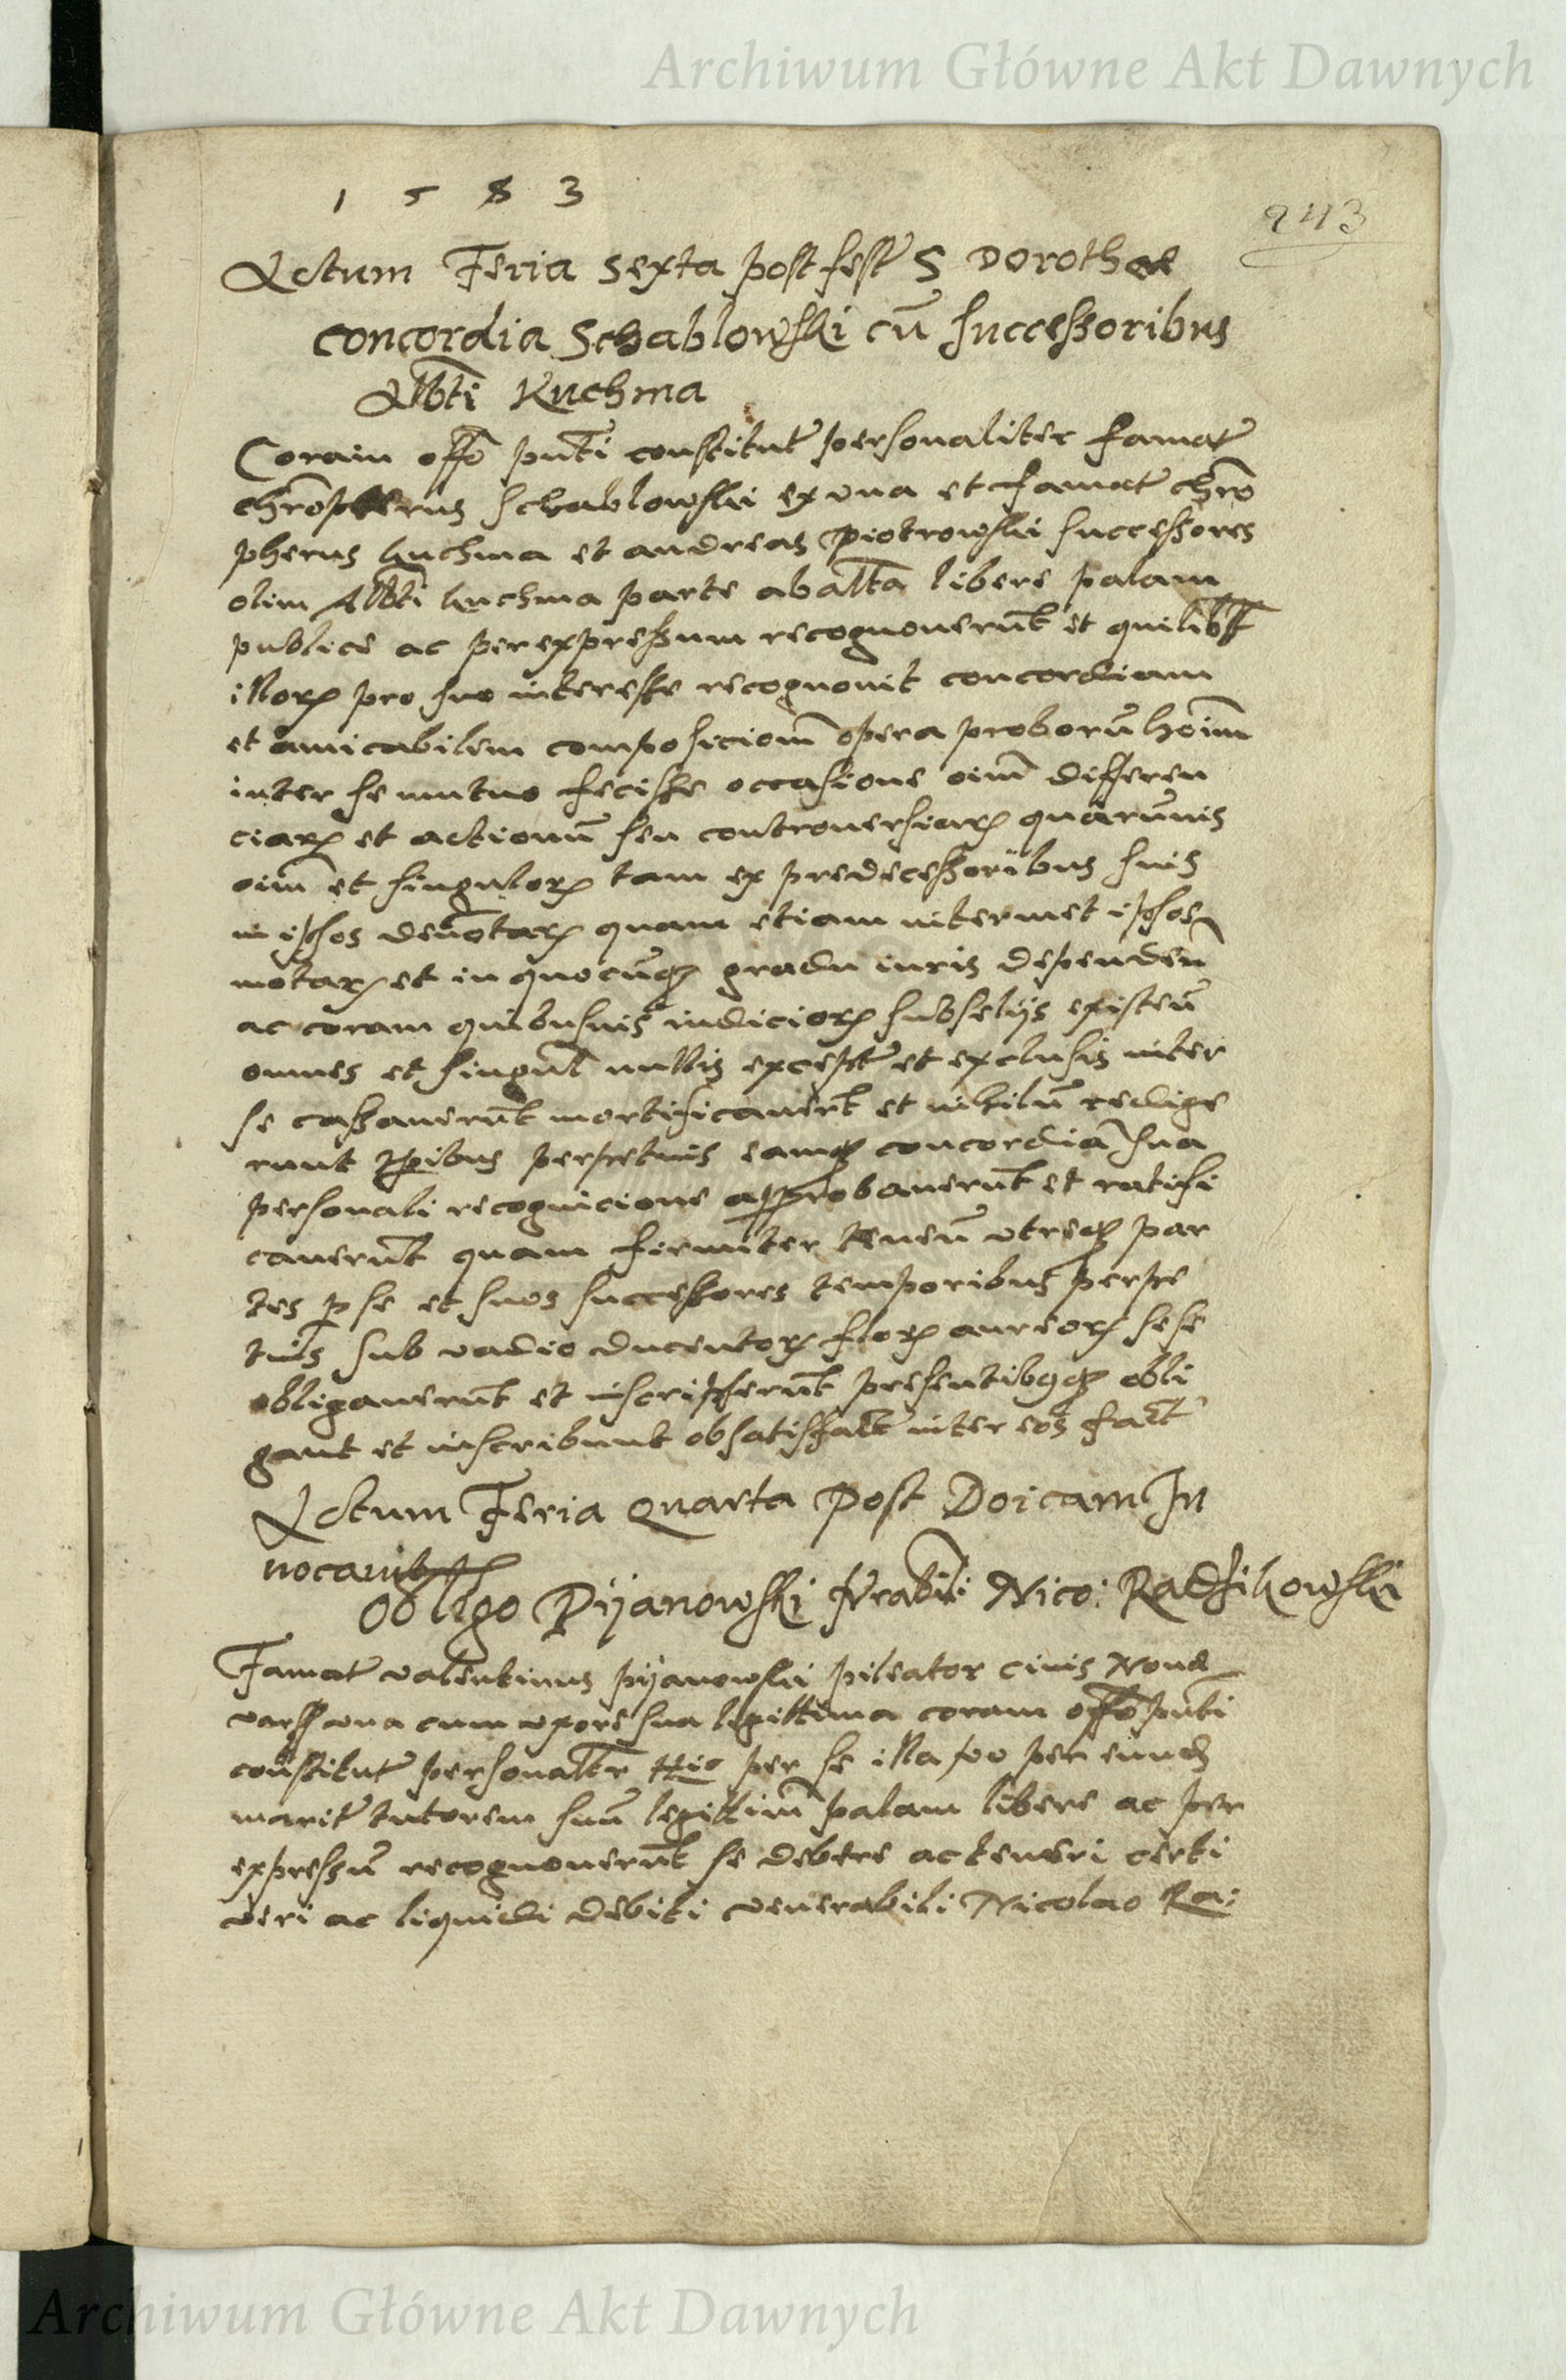 Archiwum Główne Akt Dawnych
1 5 8 3
943
Actum Feria sexta post fest S Dorothee
Concordia Schablowski cū successoribus
Alb̄ti Kuchma
Coram offo pn̄ti constitut personaliter famat
chrōpherus Schablowski ex una et famat chrō
pherus kuchma et andreas Piotrowski successores
olim Alb̄ti kuchma parte ab altā libere palam
publice ac per expressum recognouerūt et quilibt
illorꝝ pro suo interesse recognouit concordiam
et amicabilem composiciom̄ opera proborū hoīm
inter se mutuo fecisse occasione oim̄ differen
ciarꝝ et actionū seu controuersiarꝝ quarūuis
oim̄ et singulorꝝ tam ex predecessoribus suis
in ipsos deuōtarꝝ quam etiam intermet ipsos
motarꝝ et in quocūqꝫ gradu iuris dependen̄
ac coram quibusuis iudiciorꝝ subselijs existen̄
omnes et singul̄ nullis except et exclusis inter
se cassauerūt mortificauert̄ et nihilū redige
runt tp̄ibus perpetuis eamqꝫ concordiā sua
personali recognicione approbauerūt et ratifi
cauerūt quam firmiter teneū utreqꝫ par
tes ꝑ se et suos successores temporibus perpe
tuis sub vadio ducentorꝝ florꝝ aureorꝝ sese
obligauerūt et inscripserūt presentibusqꝫ obli
gant et inscribunt ob satisfact inter eos fact
Actum Feria Quarta Post Doīcam In
uocauit
Obligo Pijanowski Vrabili Nico: Radzikowski
Famat valentinus pijanowski pileator ciuis Noua
vars una cum uxore sua legittima coram offo pn̄ti
constitut personaltr Hic per se illa vo per eund
marit tutorem suū legittim̄ palam libere ac per
expressū recognouerūt se debere ac teneri certi
veri ac liquidi debiti venerabili Nicolao Ra:
Archiwum Główne Akt Dawnych